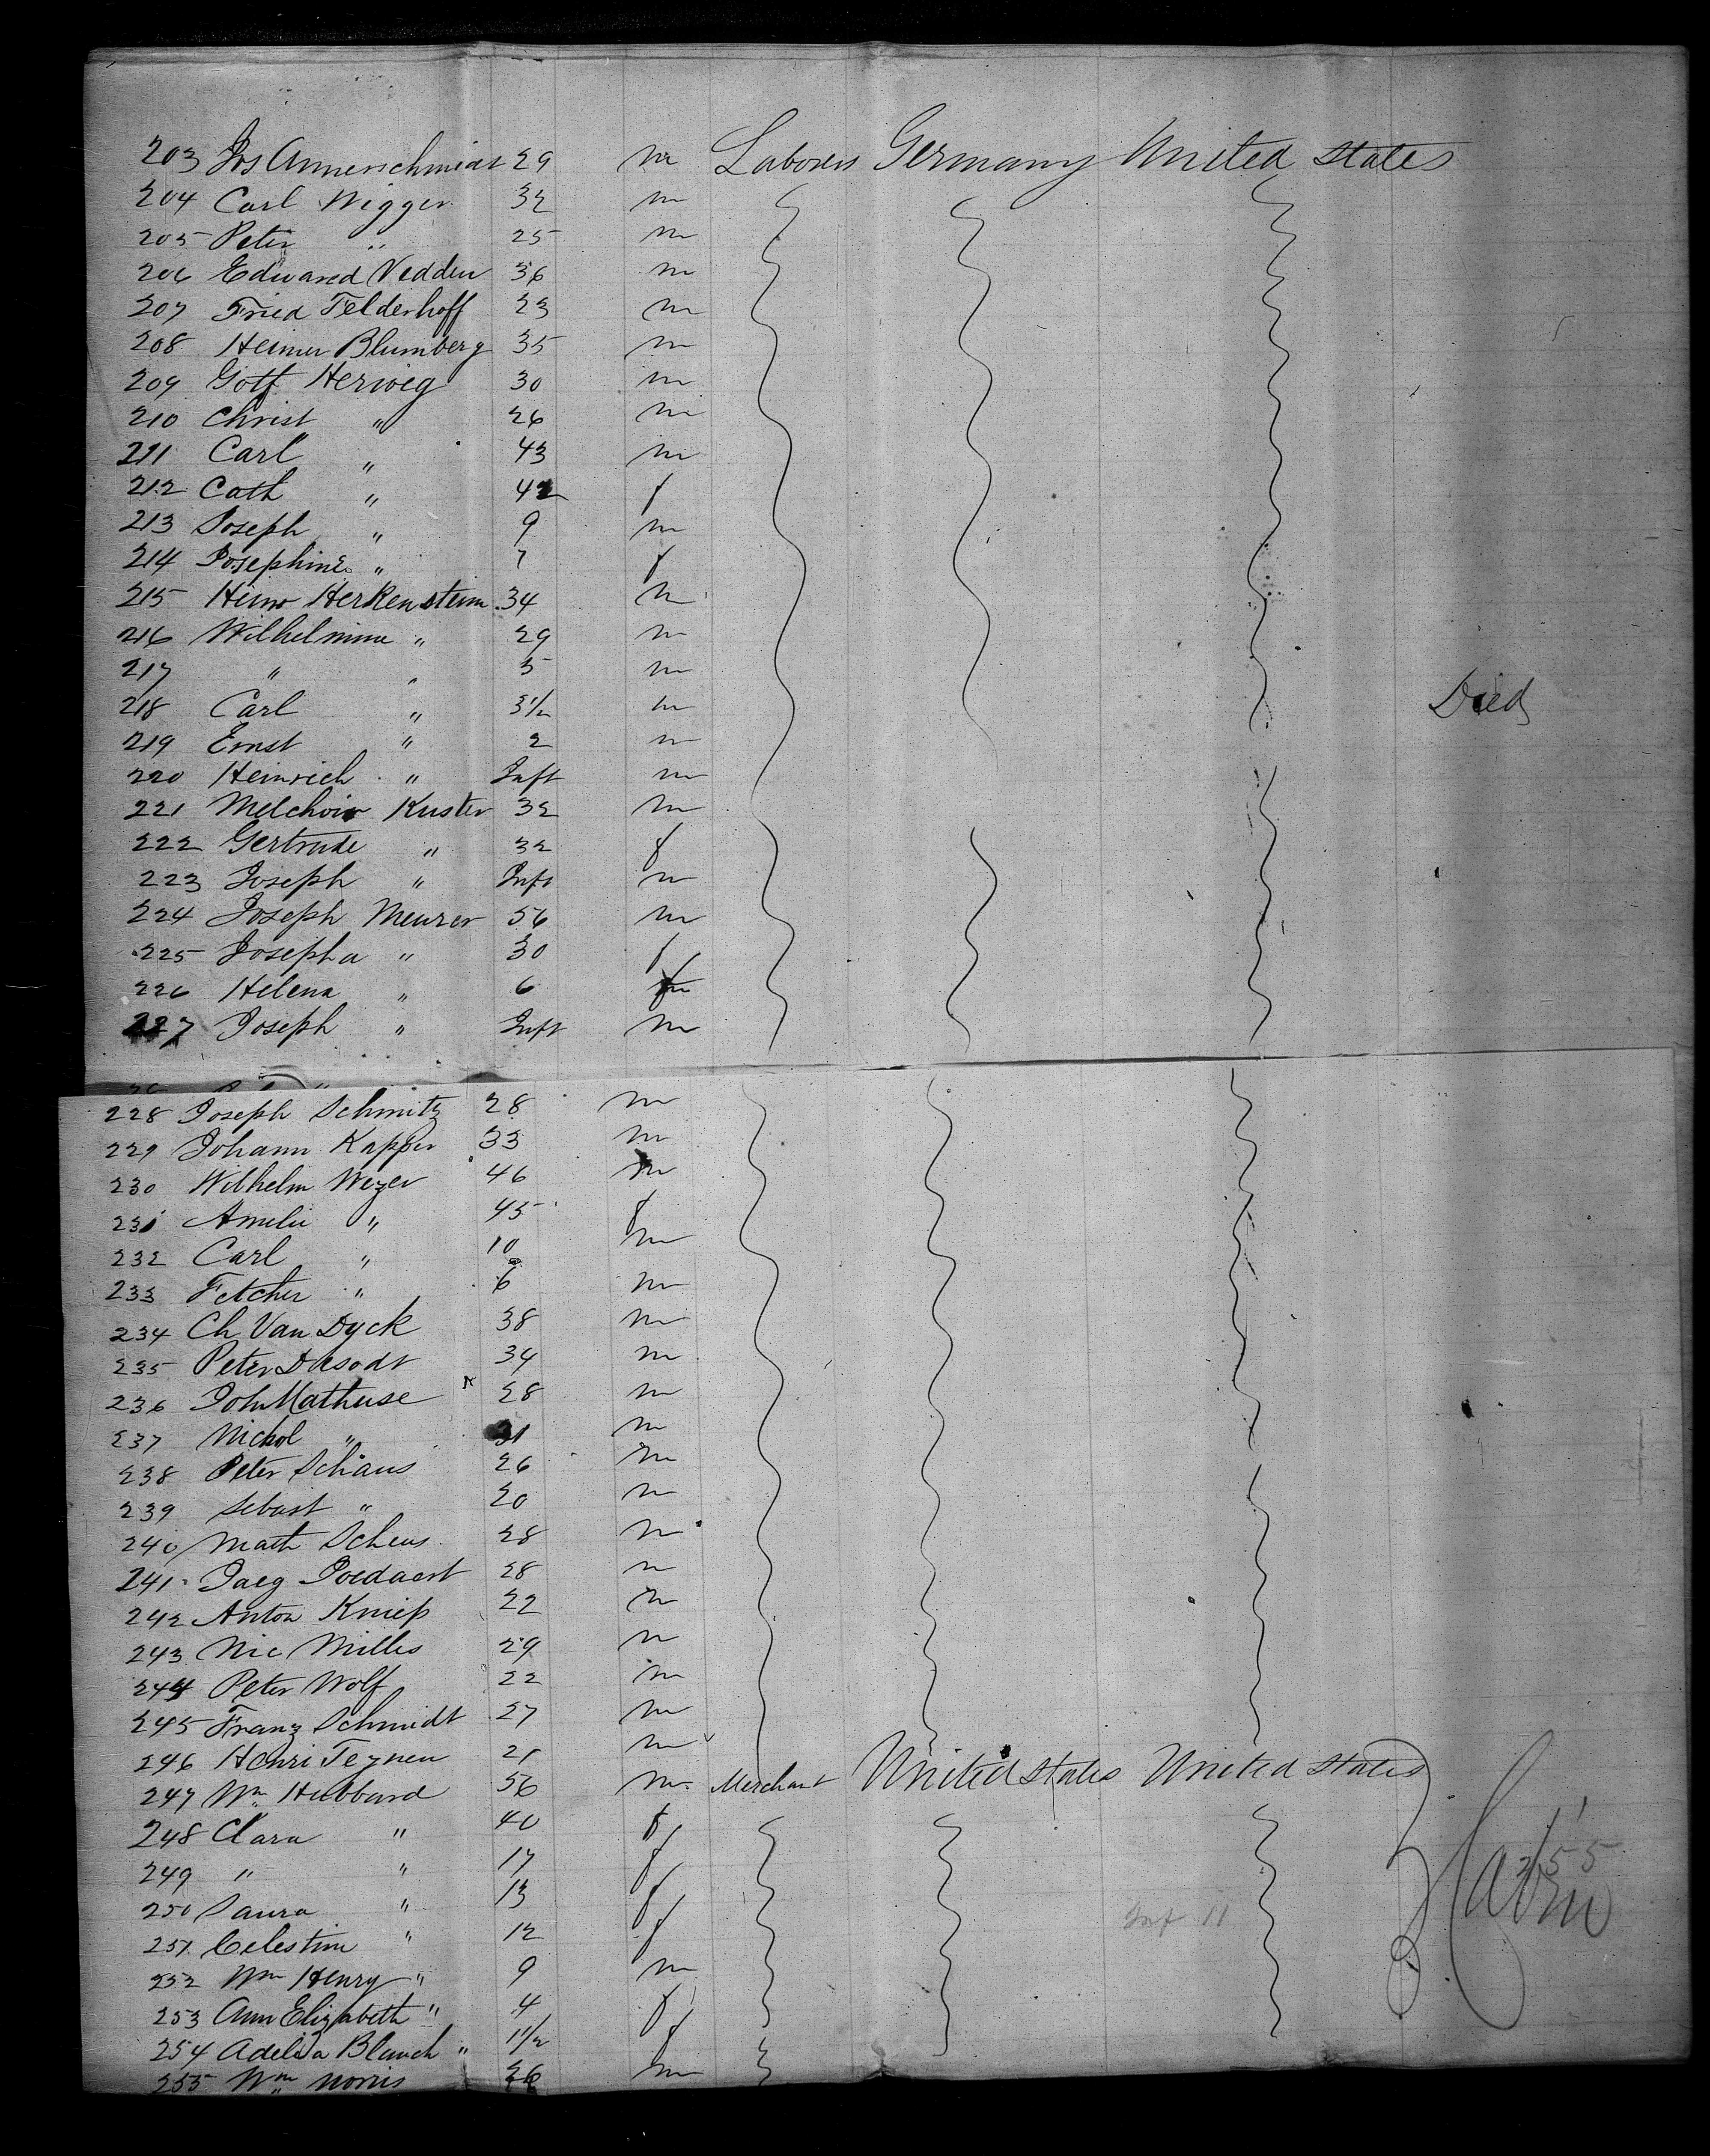 203 Jos Annerschmidt 29 m Laborer Germany United States
204 Carl Wigger 32 m
205 Peter " 25 m
206 Edward Vedder 36 m
207 Fried Felderhoff 23 m
208 Heiner Blumberg 35 m
209 Gotf Herwig 30 m
210 Christ " 26 m
211 Carl " 43 m
212 Cath " 42 f
213 Joseph " 9 m
214 Josephine " 7 f
215 Heinr Herkenstein 34 m
216 Wilhelmine " 29 m
217 " " 5 m
218 Carl " 3 1/2 m Died
219 Ernst " 2 m
220 Heinrich " Inft m
221 Melchoir Kuster 32 m
222 Gertrude " 32 f
223 Joseph " Inft m
224 Joseph Meurer 56 m
225 Josepha " 30 f
226 Helena " 6 f
227 Joseph " Inft m
228 Joseph Schmitz 28 m
229 Johann Kapper 33 m
230 Wilhelm Weyer 46 m
231 Amelie " 45 f
232 Carl " 10 m
233 Fetcher " 6 m
234 Ch Van Dyck 38 m
235 Peter 34 m
236 Joh Mathuse 28 m
237 Nickol " 31 m
238 Peter Schaus 26 m
239 Sebast " 20 m
240 Math Scheus 28 m
241 Jaeg 28 m
242 Anton Kniep 22 m
243 Nic Milles 29 m
244 Peter Wolf 22 m
245 Franz Schmidt 27 m
246 Henri Teynen 21 m
247 Wm Hubbard 56 m Merchant United States United States
248 Clara " 40 f
249 " " 17 f 255
250 Laura " 13 f Cabin
251 Celestine " 12 f Inf 11
252 Wm Henry " 9 m
253 Ann Elizabeth " 4 f
254 Adelia Blanch " 1 1/2 f
255 Wm Norris 26 m